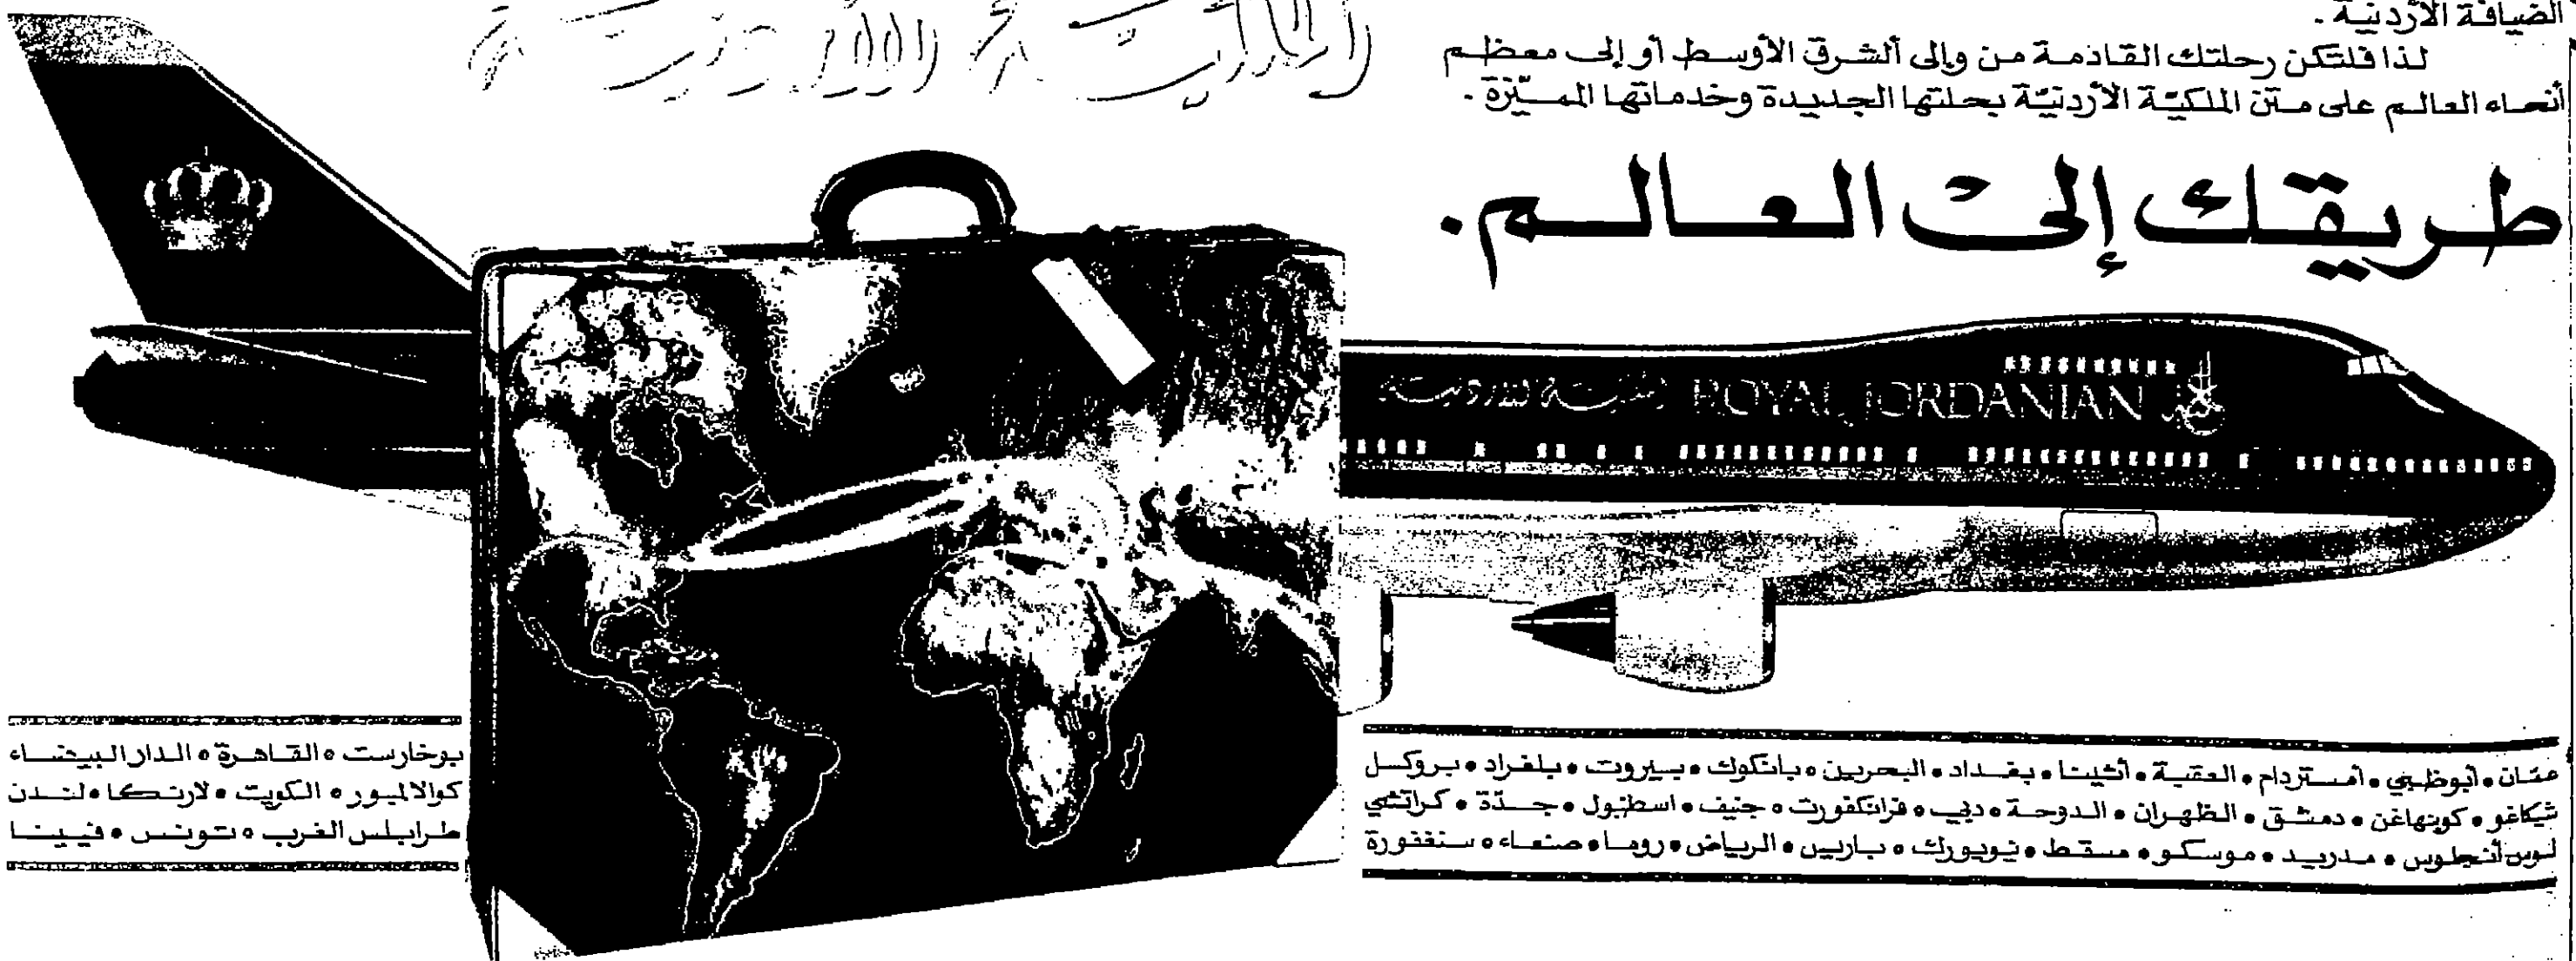 الضيافة الأردنية .
لذا فلتكن رحلتك القادمة من وإلى ألشرق الأوسط أو إلى معظم
أنحاء العالم على متن الملكيّة الأردنيّة بحلتها الجديدة وخدماتها المميّزة .
طريقك إلى العالم.
الملكية الأردنية
الملكية الأردنية ROYAL JORDANIAN
عمّان • أبوظبي • أمستردام • العقبة • أثينا • بغداد • البحرين • بانكوك • بيروت • بلغراد • بروكسل
شيكاغو • كوبنهاغن • دمشق • الظهران • الدوحة • دبي • فرانكفورت • جنيف • اسطنبول • جدّة • كراتشي
لوس أنجلوس • مدريد • موسكو • مسقط • نيويورك • باريس • الرياض • روما • صنعاء • سنغفورة
بوخارست • القاهرة • الدار البيضاء
كوالالمبور • الكويت • لارنكا • لندن
طرابلس الغرب • تونس • فيينا